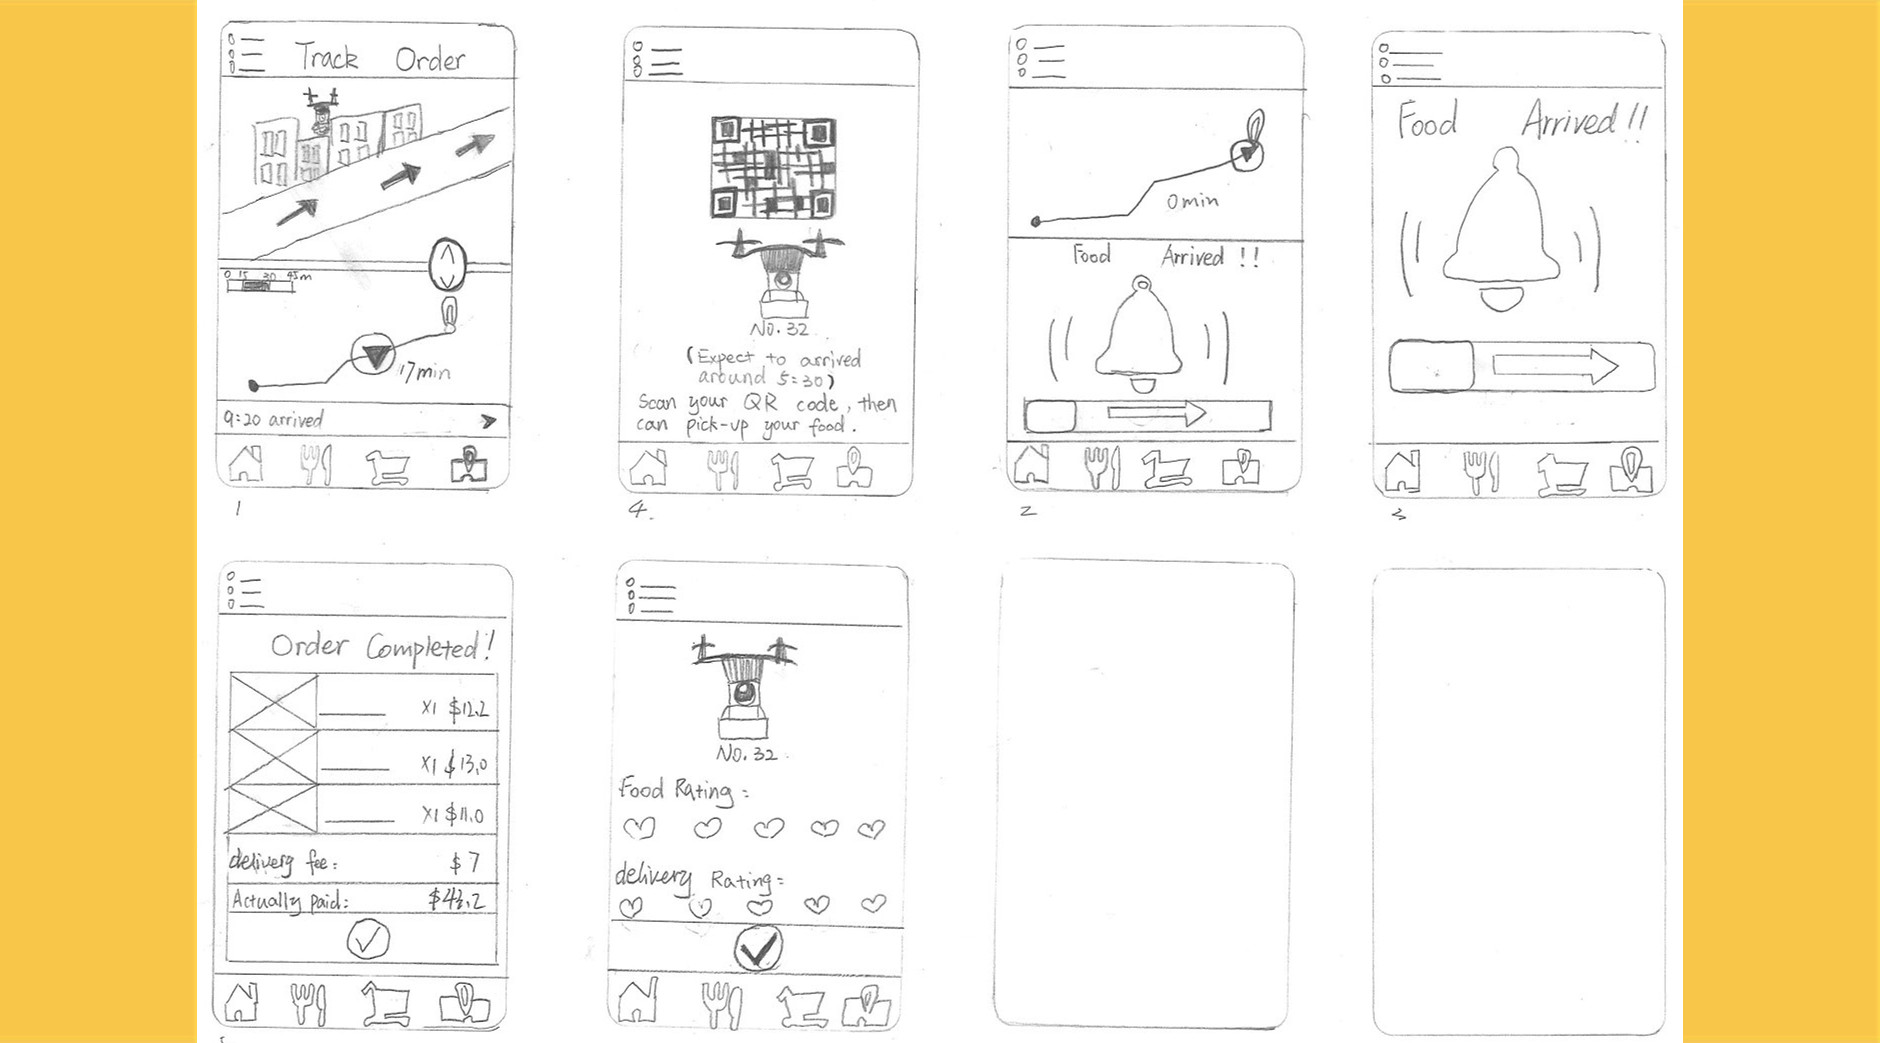 Track Order
0 15 30 45m
17min
9:20 arrived
1
No. 32
(Expect to arrived
around 5:30)
Scan your QR code, then
can pick-up your food.
4.
0min
Food Arrived !!
2
Food Arrived !!
3
Order Completed!
X1 $12.2
X1 $13.0
X1 $11.0
delivery fee: $7
Actually paid:
No. 32
Food Rating:
delivery Rating: